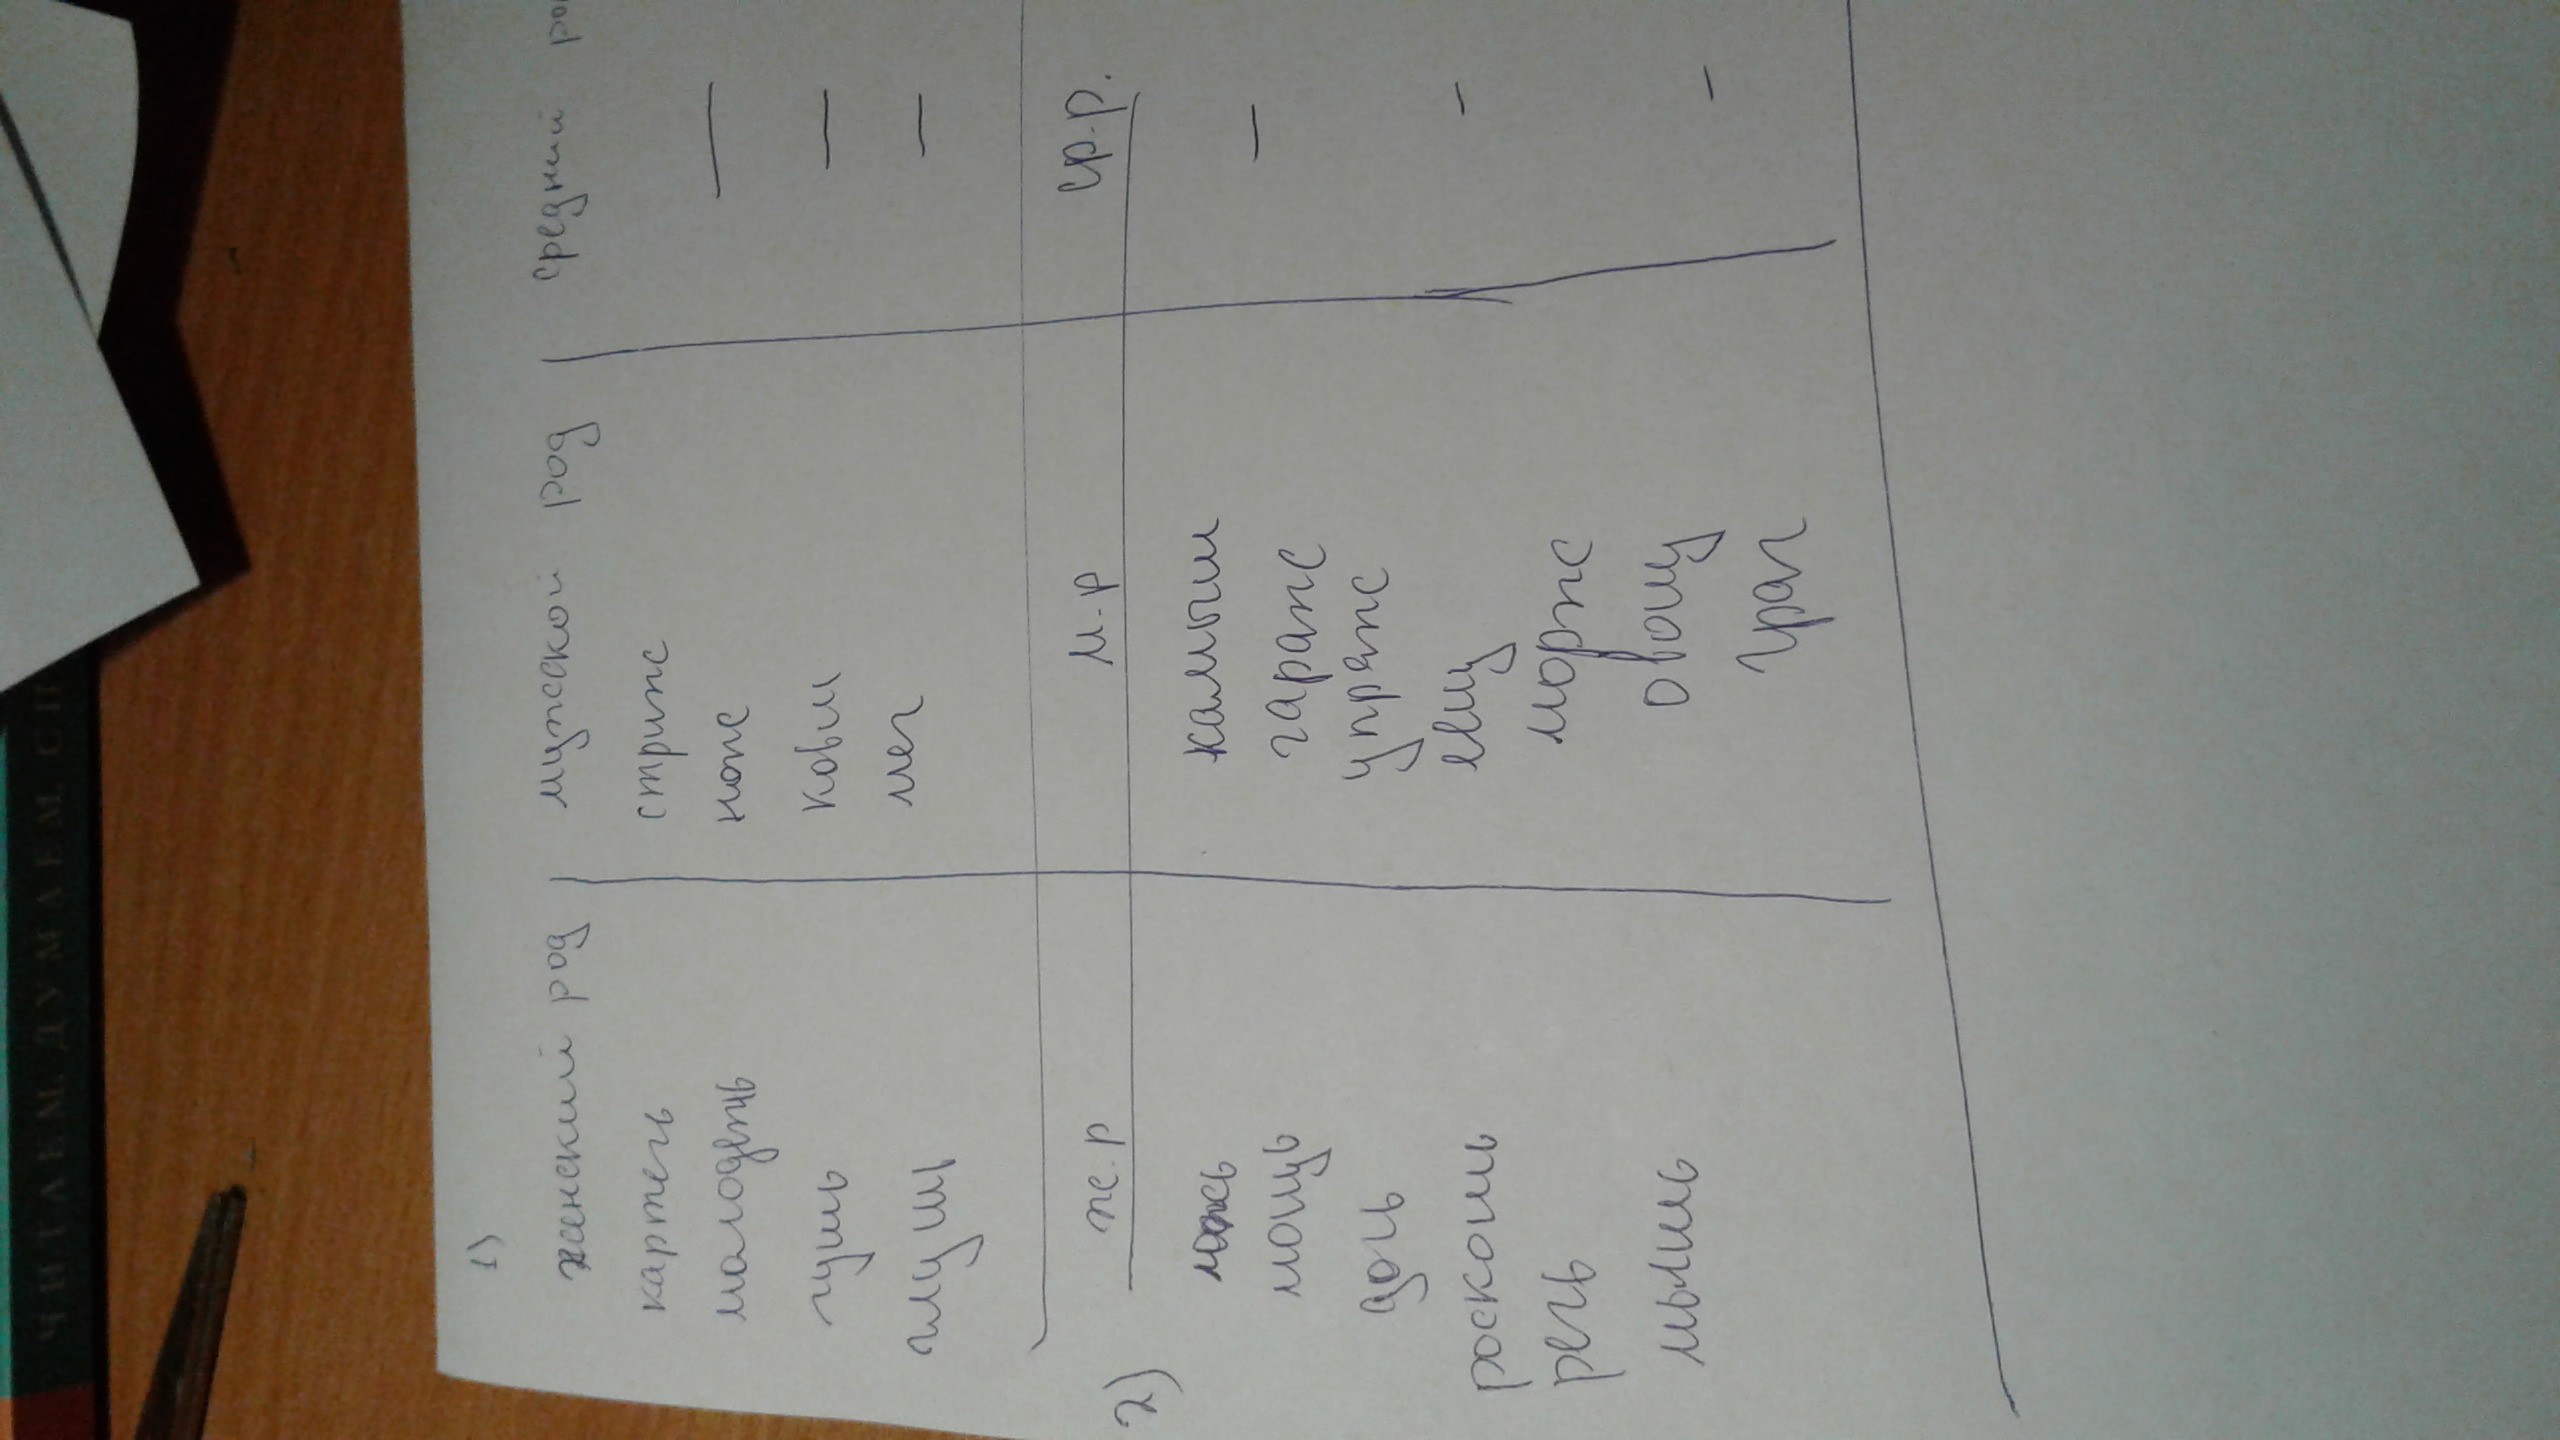 ЧИТАЕМ, ДУМАЕМ, СП
1)
женский род мужской род средний ро
картечь стриж —
молодежь нож
тушь ковш —
глушь меч —
2) ж.р м.р ср.р.
ложь камыш —
мощь гараж
дочь упряж
роскошь лещ —
речь морж
мышь овощ —
грач